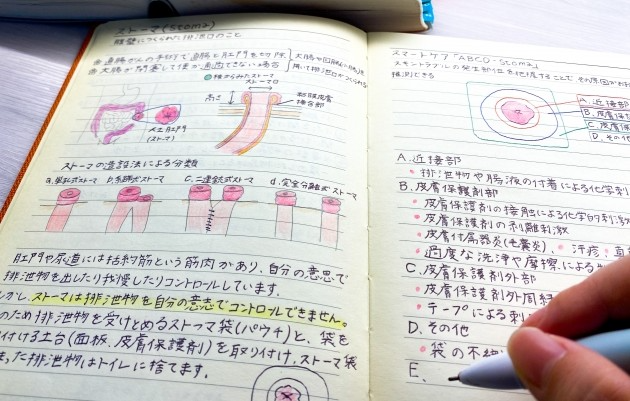 ストーマ(stoma)
腹壁につくられた排泄口のこと
直腸がんの手術で直腸と肛門を切除
大腸が閉塞して便が通過できない場合
横からみたストーマ
ストーマ口
高さ
粘膜皮膚
接合部
人工肛門
(ストーマ)
ストーマの造設法による分類
a.単孔式ストーマ b.係蹄式ストーマ C.二連銃式ストーマ d.完全分離式ストーマ
肛門や尿道には括約筋という筋肉があり、自分の意思で
排泄物を出したり我慢したりコントロールしています。
かし、ストーマは排泄物を自分の意志でコントロールできません。
のため排泄物を受けとめるストマ袋(パウチ)と、袋を
付ける土台(面板、皮膚保護剤)を取り付け、ストーマ袋
った排泄物はトイレに捨てます。
スマートケア「ABCD-Stoma」
スキントラブルの発生部位を
推測できる
A.近接部
B.皮膚保
C.皮膚保
D.その
A.近接部
・排泄物や腸液の付着による化学刺
B.皮膚保護剤部
・皮膚保護剤の接触による化学的刺激
・皮膚保護剤の剥離刺激
・皮膚付属器炎(毛嚢炎)、・汗疹、
・過度な洗浄や摩擦による
C.皮膚保護剤外部
・皮膚保護剤外周
・テープによる刺
D.その他
・袋の不
E.